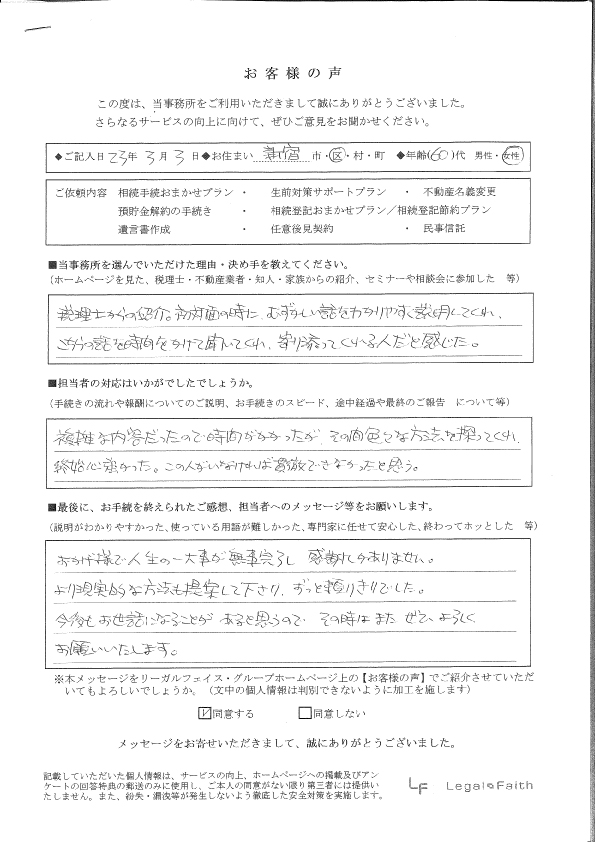 お客様の声
この度は、当事務所をご利用いただきまして誠にありがとうございました。
さらなるサービスの向上に向けて、ぜひご意見をお聞かせください。
◆ご記入日 23年 3月 3日◆お住まい 新宿 市・区・村・町 ◆年齢(60)代 男性・女性
ご依頼内容 相続手続おまかせプラン ・ 生前対策サポートプラン ・ 不動産名義変更
預貯金解約の手続き ・ 相続登記おまかせプラン／相続登記節約プラン
遺言書作成 ・ 任意後見契約 ・ 民事信託
■当事務所を選んでいただけた理由・決め手を教えてください。
（ホームページを見た、税理士・不動産業者・知人・家族からの紹介、セミナーや相談会に参加した 等）
税理士からの紹介。初対面の時に、むずかしい話をわかりやすく説明してくれ、
こちらの話を時間をかけて聞いてくれ、寄り添ってくれる人だと感じた。
■担当者の対応はいかがでしたでしょうか。
（手続きの流れや報酬についてのご説明、お手続きのスピード、途中経過や最終のご報告 について等）
複雑な内容だったので時間がかかったが、その間色々な方法を探ってくれ、
終始心強かった。この人がいなければ貫徹できなかったと思う。
■最後に、お手続を終えられたご感想、担当者へのメッセージ等をお願いします。
（説明がわかりやすかった、使っている用語が難しかった、専門家に任せて安心した、終わってホッとした 等）
おかげ様で人生の一大事が無事完了し 感謝しかありません。
より現実的な方法も提案して下さり、ずっと頼りきりでした。
今後もお世話になることがあると思うので その時はまた ぜひ、よろしく
お願いいたします。
※本メッセージをリーガルフェイス・グループホームページ上の【お客様の声】でご紹介させていただ
いてもよろしいでしょうか。（文中の個人情報は判別できないように加工を施します）
☑同意する □同意しない
メッセージをお寄せいただきまして、誠にありがとうございました。
記載していただいた個人情報は、サービスの向上、ホームページへの掲載及びアン
ケートの回答特典の郵送のみに使用し、ご本人の同意がない限り第三者には提供い
たしません。また、紛失・漏洩等が発生しないよう徹底した安全対策を実施します。
LF Legal Faith